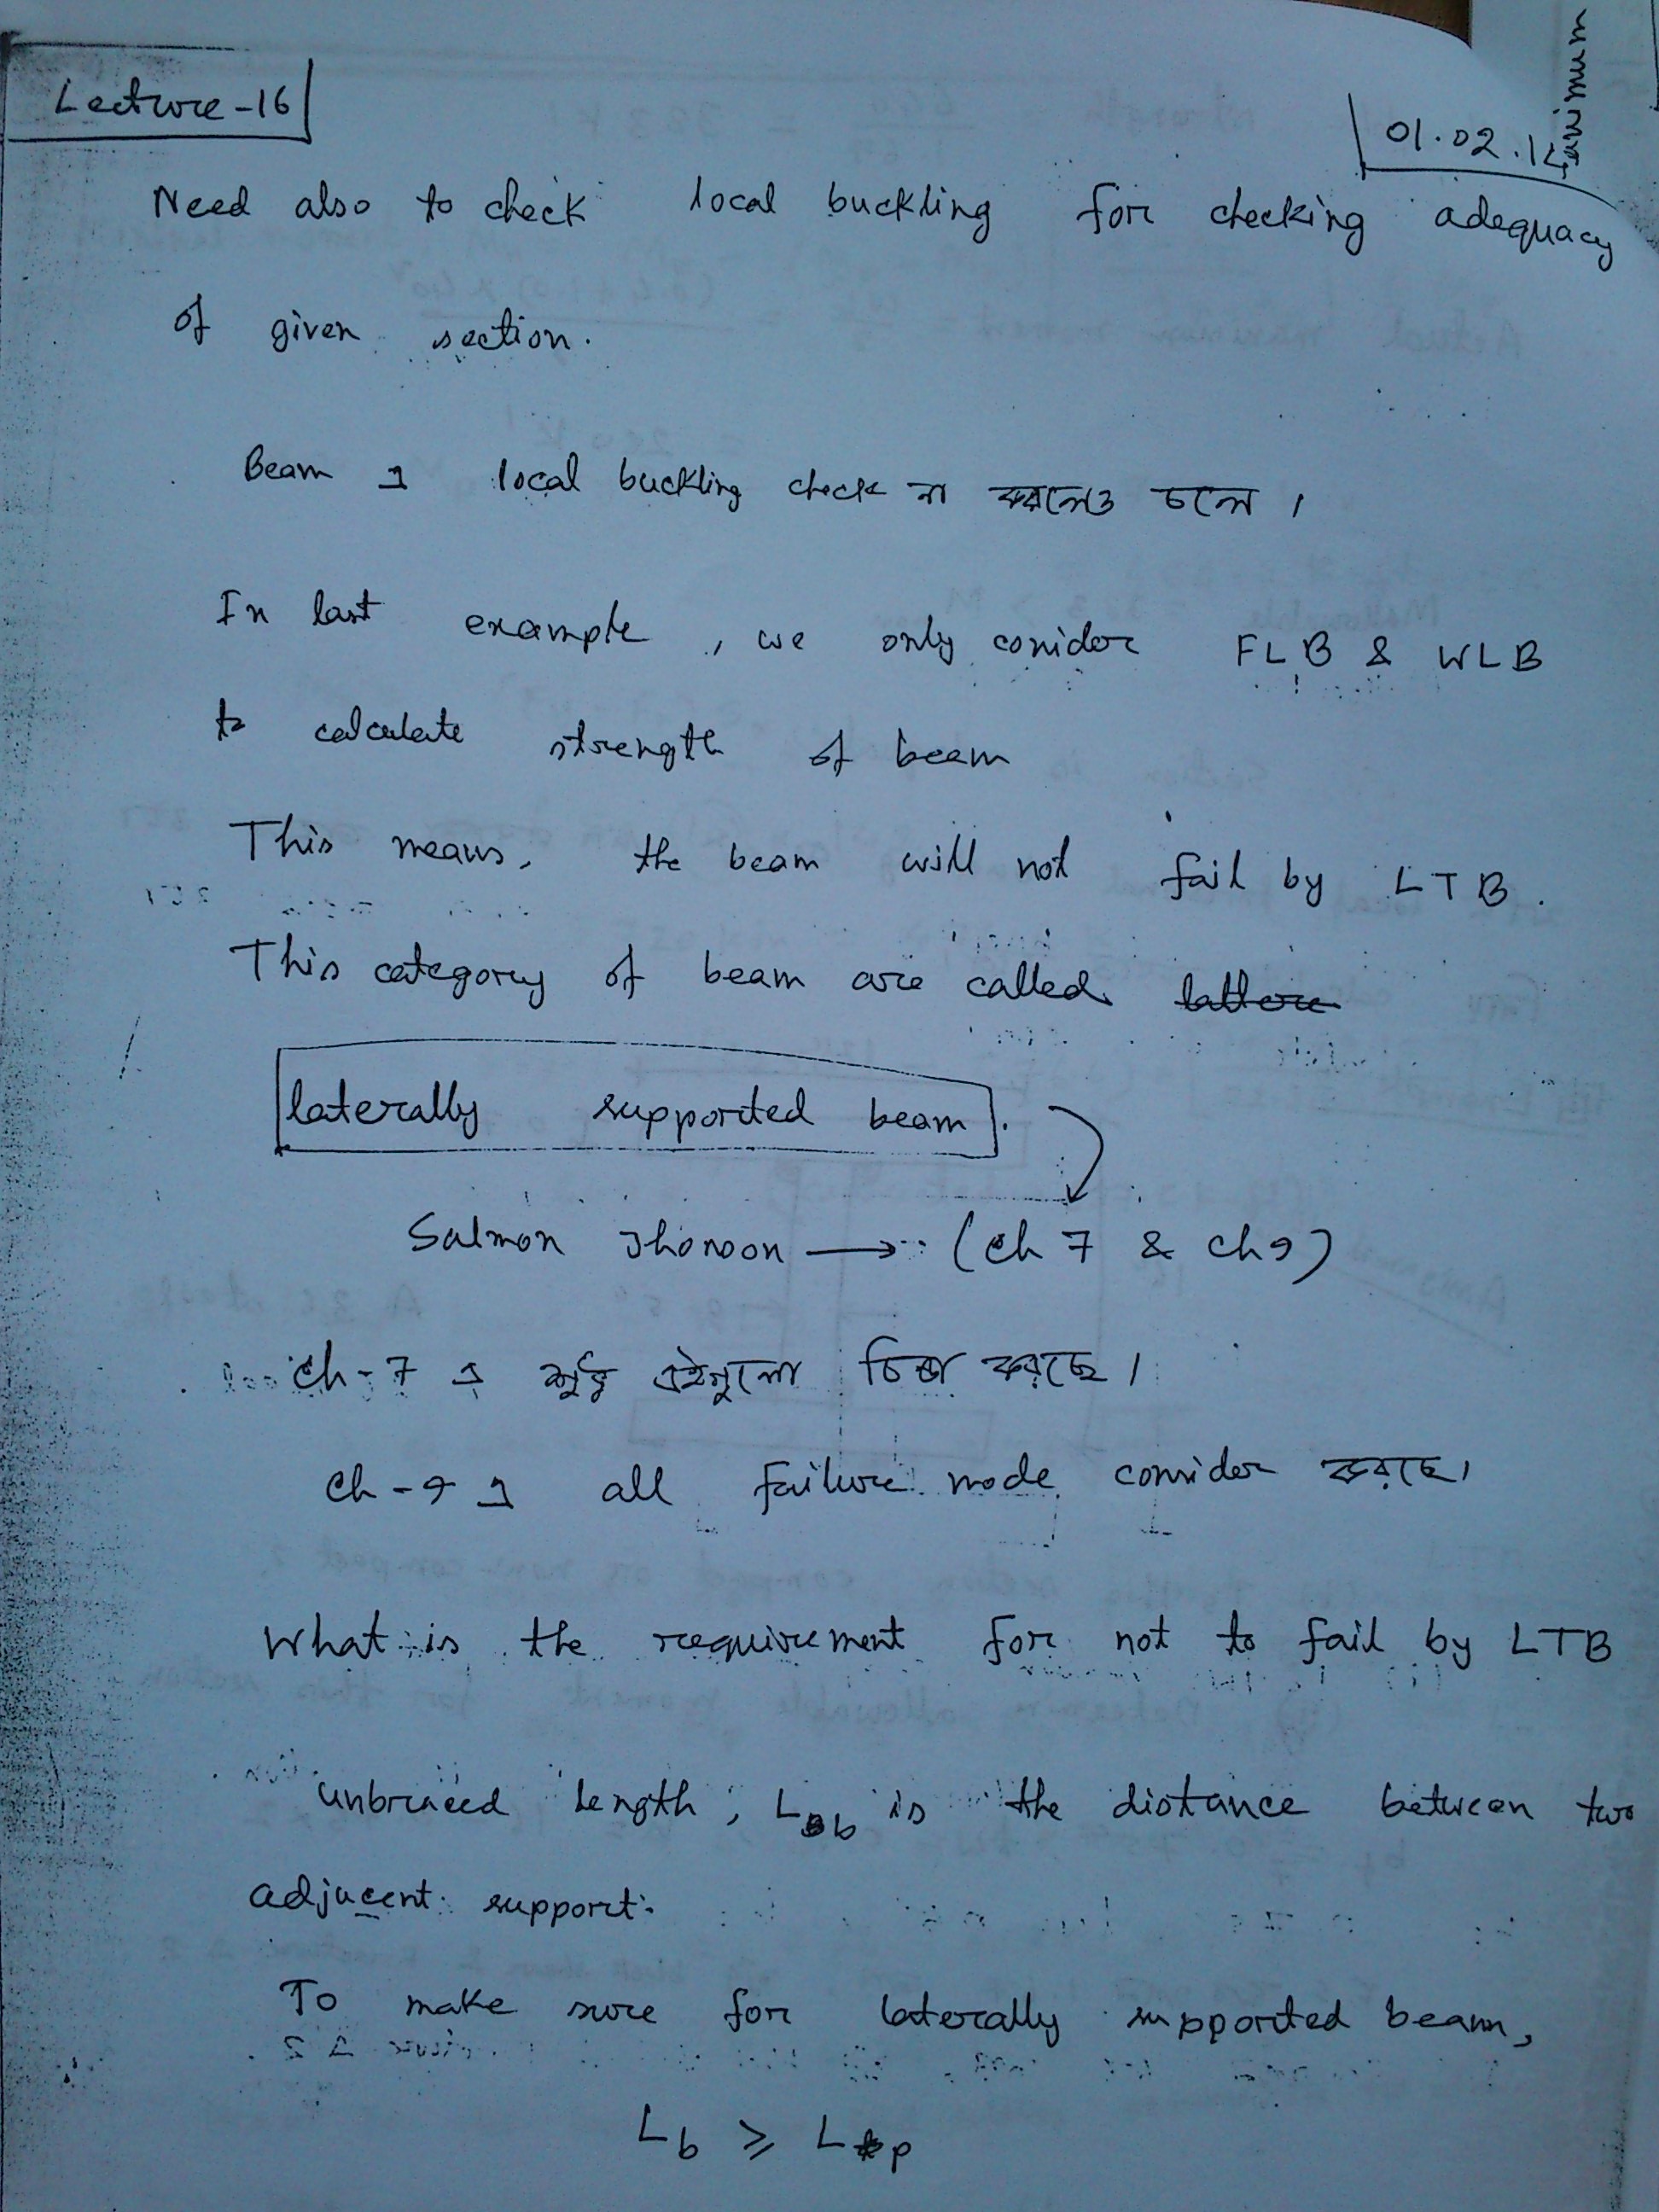 Lecture-16
01.02.1
Need also to check local buckling for checking adequacy
of given section.
Beam এ local buckling check না করলেও চলে।
In last example, we only conider FLB & WLB
to calculate strength of beam
This means, the beam will not fail by LTB.
This category of beam are called
laterally supported beam.
Salmon Jhonson → (ch 7 & ch 9)
ch-7 এ শুধু এইগুলো চিন্তা করছে।
ch-9 এ all failure mode consider করছে।
What is the requirement for not to fail by LTB
unbraced length, Lb is the distance between two
adjacent support.
To make sure for laterally supported beam,
Lb ≥ Lp